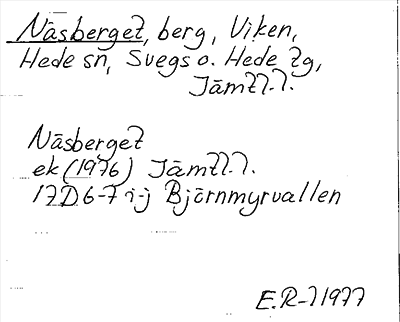 Näsberget, berg, Viken,
Hede sn, Svegs o. Hede tg,
Jämtl.l.
Näsberget
ek (1976) Jämtl.l.
17D 6-7 i-j Björnmyrvallen
E.R-l 1977